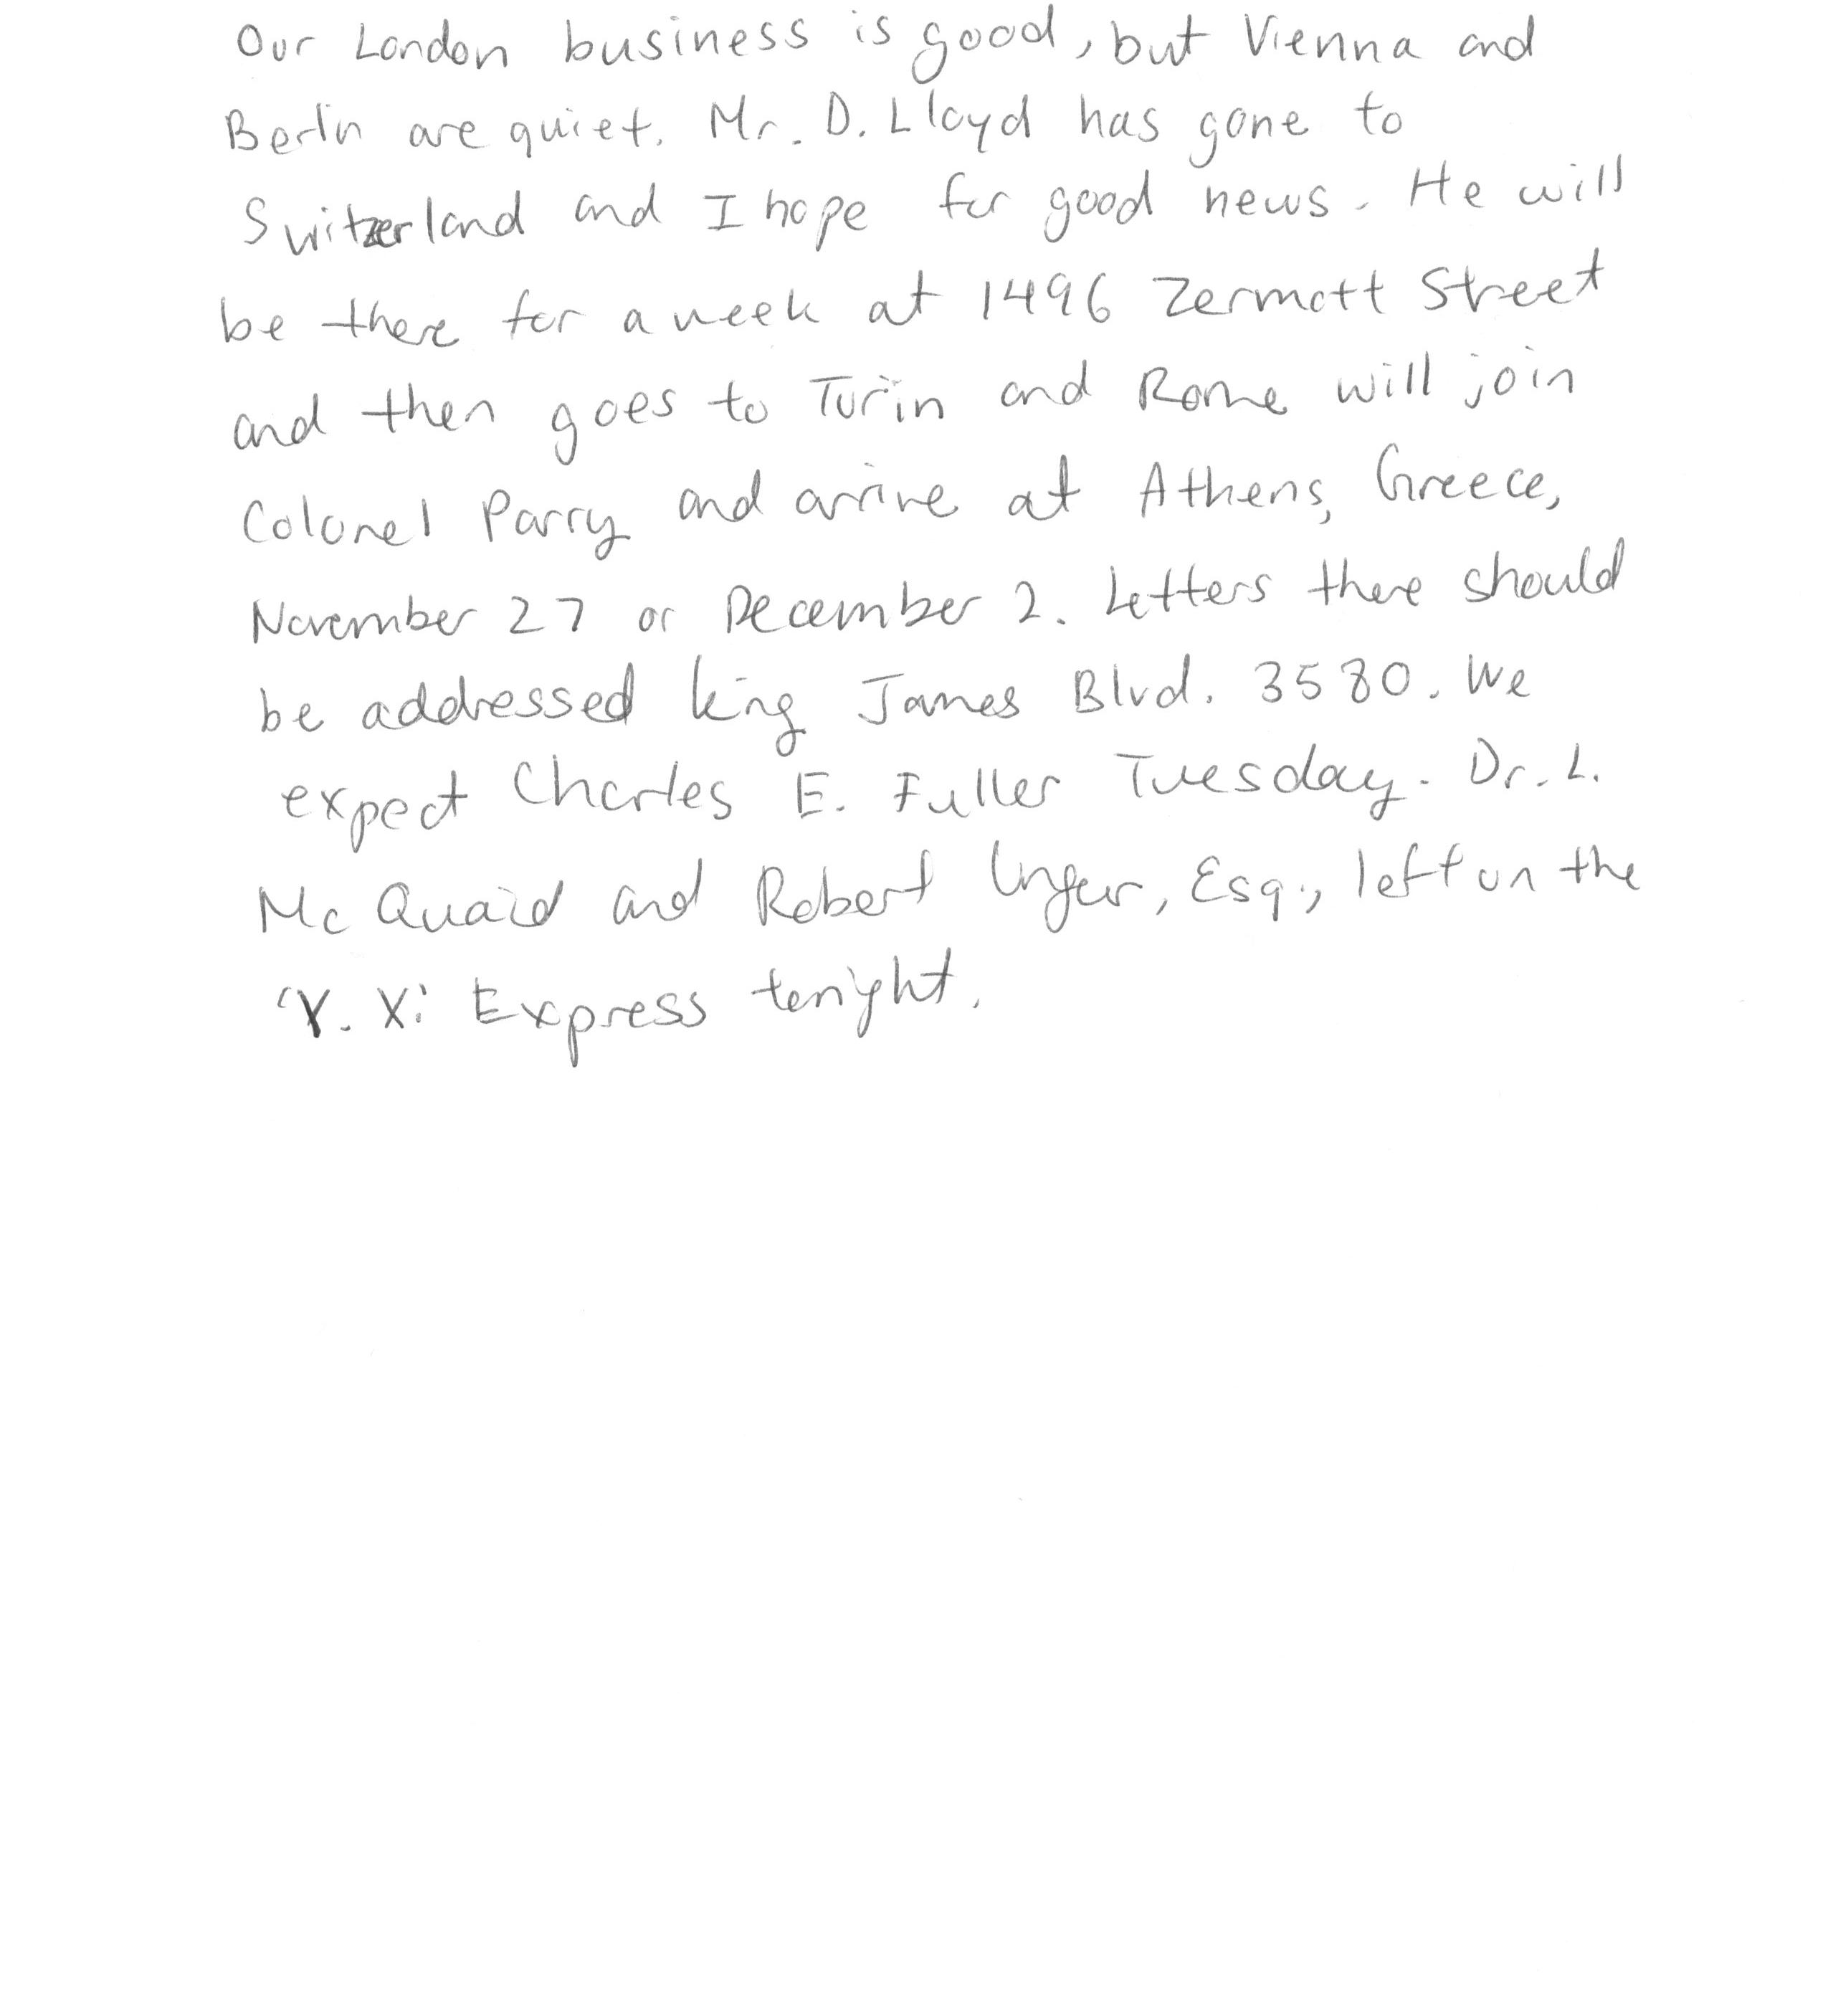 Our London business is good, but Vienna and
Berlin are quiet. Mr. D. Lloyd has gone to
Switzerland and I hope for good news. He will
be there for a week at 1496 Zermott Street
and then goes to Turin and Rome will join
Colonel Parry and arrive at Athens, Greece,
November 27 or December 2. Letters there should
be addressed King James Blvd. 3580. We
expect Charles E. Fuller Tuesday. Dr. L.
Mc Quaid and Robert Unger, Esq., left on the
'Y. X.' Express tonight.